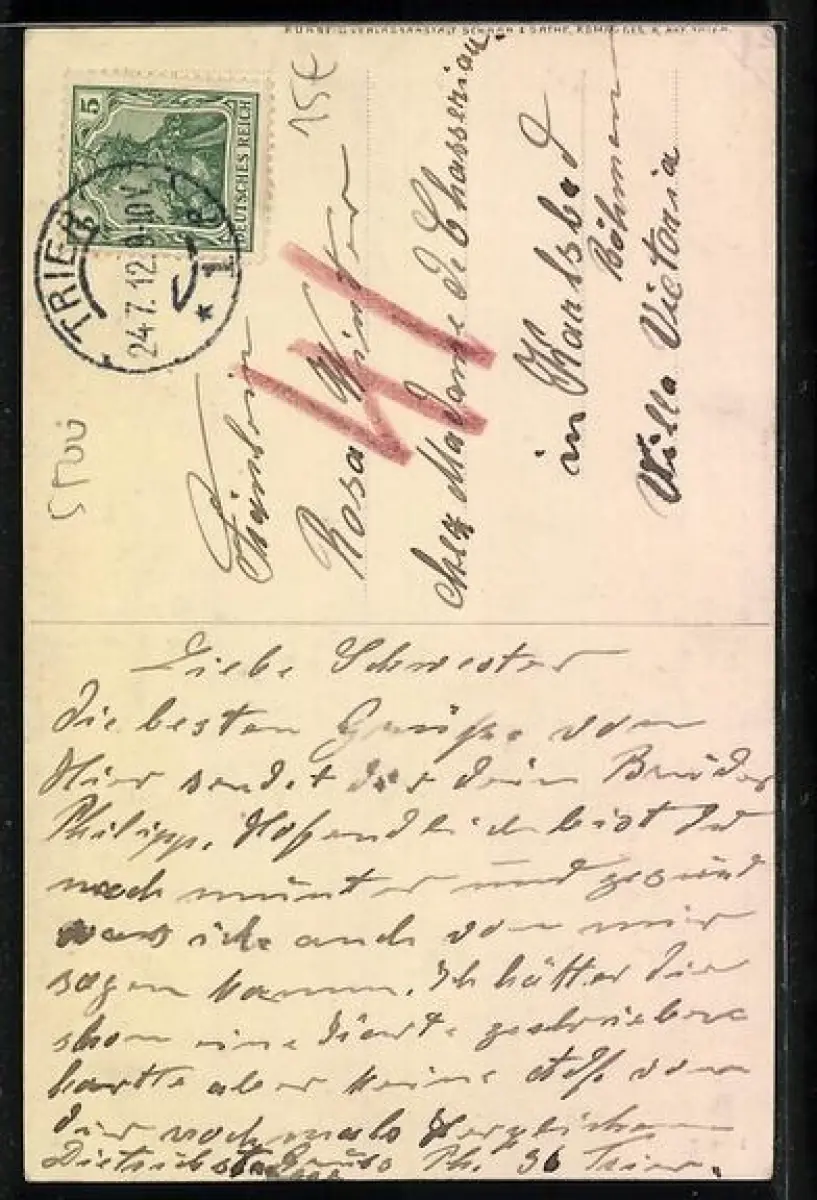 KUNST U. VERLAGSANSTALT SCHAAR & DATHE, KOMM.-GES. A. AKT. TRIER.
15€
5
DEUTSCHES REICH
TRIER
24.7.12. 9-10V.
* 1 c
Fräulein
Rosa Winter
bei Madame de Chasserian.
in Karlsbad
Böhmen
Villa Victoria
Liebe Schwester
die besten Grüße von
Hier sendet dir dein Bruder
Philipp. Hofendlich bist du
noch munter und gesund
was ich auch von mir
sagen kann. Ich hätte dir
schon eine Karte geschrieben
hatte aber keine Adß. von
dir nochmals Herzlichen
Dietrichstr. Gruß Ph. 36 Trier.